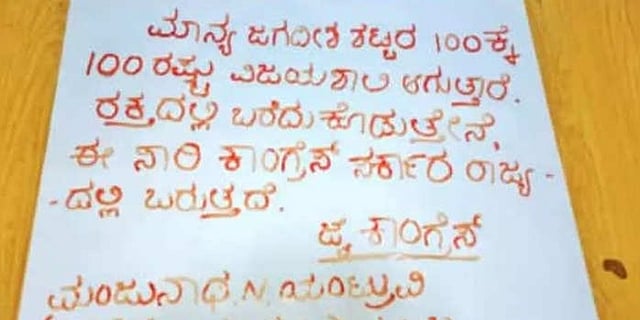 ಮಾನ್ಯ ಜಗದೀಶ ಶಟ್ಟರ 100ಕ್ಕೆ
100 ರಷ್ಟು ವಿಜಯಶಾಲಿ ಆಗುತ್ತಾರೆ.
ರಕ್ತದಲ್ಲಿ ಬರೆದು ಕೊಡುತ್ತೇನೆ,
ಈ ಸಾರಿ ಕಾಂಗ್ರೆಸ್ ಸರ್ಕಾರ ರಾಜ್ಯ-
-ದಲ್ಲಿ ಬರುತ್ತದೆ.
ಜೈ ಕಾಂಗ್ರೆಸ್
ಮಂಜುನಾಥ. N. ಯಂಟ್ರುವಿ